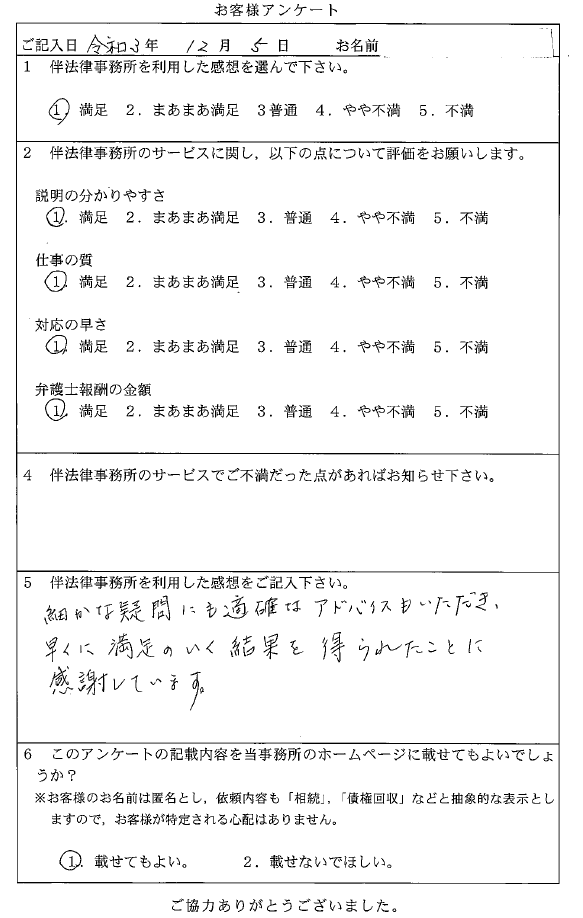 お客様アンケート
ご記入日 令和3年 12月 5日 お名前
1 伴法律事務所を利用した感想を選んで下さい。
1. 満足 2. まあまあ満足 3普通 4. やや不満 5. 不満
2 伴法律事務所のサービスに関し,以下の点について評価をお願いします。
説明の分かりやすさ
1. 満足 2. まあまあ満足 3. 普通 4. やや不満 5. 不満
仕事の質
1. 満足 2. まあまあ満足 3. 普通 4. やや不満 5. 不満
対応の早さ
1. 満足 2. まあまあ満足 3. 普通 4. やや不満 5. 不満
弁護士報酬の金額
1. 満足 2. まあまあ満足 3. 普通 4. やや不満 5. 不満
4 伴法律事務所のサービスでご不満だった点があればお知らせ下さい。
5 伴法律事務所を利用した感想をご記入下さい。
細かな疑問にも適確なアドバイスもいただき、
早くに満足のいく結果を得られたことに
感謝しています。
6 このアンケートの記載内容を当事務所のホームページに載せてもよいでしょ
うか?
※お客様のお名前は匿名とし,依頼内容も「相続」,「債権回収」などと抽象的な表示とし
ますので,お客様が特定される心配はありません。
1. 載せてもよい。 2. 載せないでほしい。
ご協力ありがとうございました。